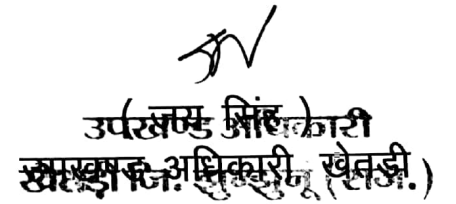 ( जय सिंह )
उपखण्ड अधिकारी
उपखण्ड अधिकारी, खेतड़ी
खेतड़ी जि. झुन्झुनू (राज.)